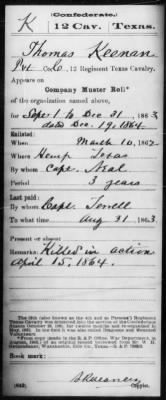 (Confederate.)
K 12 Cav. Texas.
Thomas Keenan
Pvt Co. , 12 Regiment Texas Cavalry.
Appears on
Company Muster Roll*
of the organization named above,
for Sept 1 to Dec 31, 1863
dated Dec. 19, 1864.
Enlisted:
When March 10, 1862
Where Hemp Texas
By whom Capt. Neal
Period 3 years
Last paid:
By whom Capt. Terrell
To what time Aug 31, 1863.
Present or absent
Remarks: Killed in action
April 15, 1864.
Book mark:
(642) Copyist.